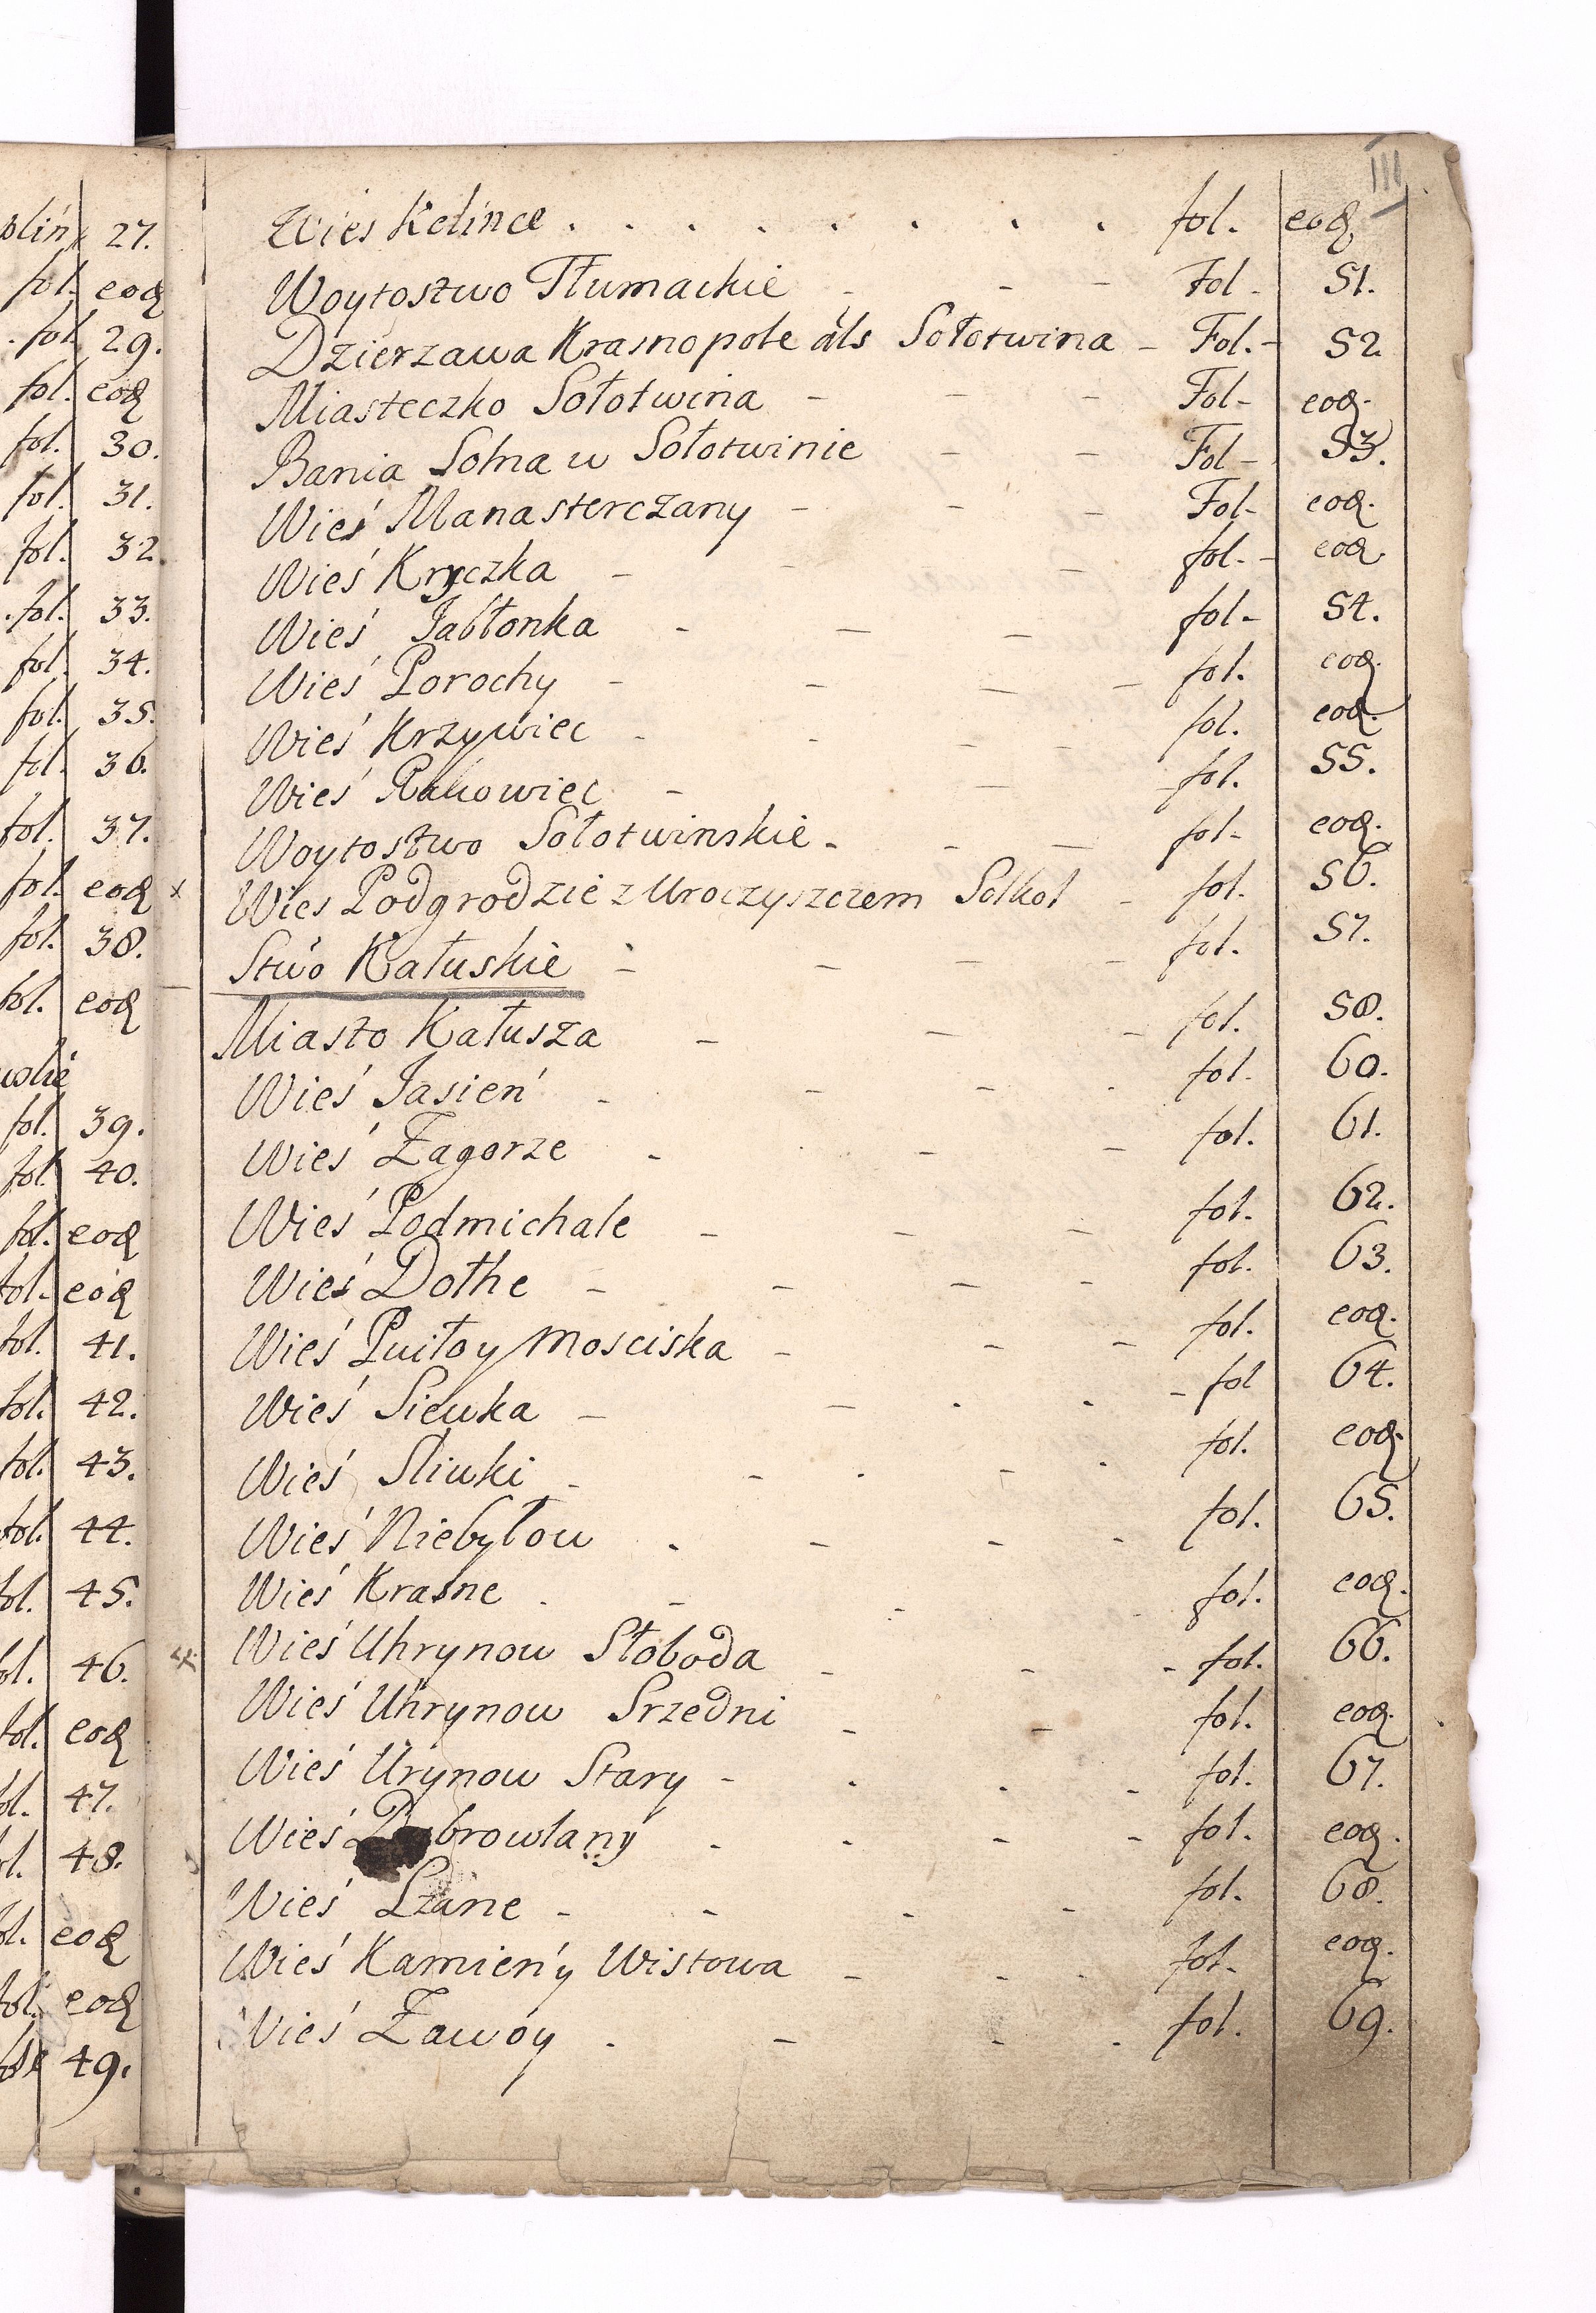 III
oliń 27.
fol. eoq
fol 29.
fol. eoq
fol. 30.
fol. 31.
fol. 32.
fol. 33.
fol. 34.
fol. 35.
fol. 36.
fol. 37.
fol. eoq
fol. 38.
fol. eoq
fol. 39.
fol. 40.
fol. eoq
fol. eoq
fol. 41.
fol. 42.
fol. 43.
fol. 44.
fol. 45.
fol. 46.
fol. eoq
fol. 47.
fol. 48.
fol. eoq
fol. eoq
49.
Wieś Kelince . . . . . . . . fol. eoq
Woytostwo Tłumackie - - - Fol - 51.
Dzierzawa Krasnopole als Sołotwina - Fol. - 52
Miasteczko Sołotwina - - - Fol - eoq.
Bania Solna w Sołotwinie - - Fol - 53.
Wieś Manasterczany - - - Fol - eoq.
Wieś Kryczka - - - fol. - eoq
Wieś Jabłonka - - - fol - 54.
Wieś Porochy - - - - fol. eoq.
Wieś Krzywiec - - - - fol. eoq.
Wieś Rakowiec - - - fol. 55.
Woytostwo Sołotwinskie - - - fol - eoq.
x Wies Podgrodzie z Uroczyszczem Solkol - fol. 56.
Stwo Kałuskie - - - - fol. 57.
Miasto Kałusza - - - fol. 58.
Wieś Jasień - - - . fol. 60.
Wieś Zagorze - - - fol. 61.
Wieś Podmichale - - - fol. 62.
Wieś Dołhe - - - - fol. 63.
Wieś Puiło y Mosciska - - - fol. eoq.
Wieś Siewka - - . . - fol 64.
Wieś Sliwki - - . - . fol. eoq.
Wieś Niebyłow . - - - fol. 65.
Wieś Krasne . - - - fol. eoq.
Wieś Uhrynow Słoboda - - - fol. 66.
Wieś Uhrynow Srzedni - - fol. eoq.
Wieś Urynow Stary - . . - fol. 67.
Wieś browlany . . - - fol. eoq.
Wieś Lzane - - - - fol. 68.
Wieś Kamień y Wistowa - . . fol - eoq.
Wieś Zawoy . - . . fol. 69.